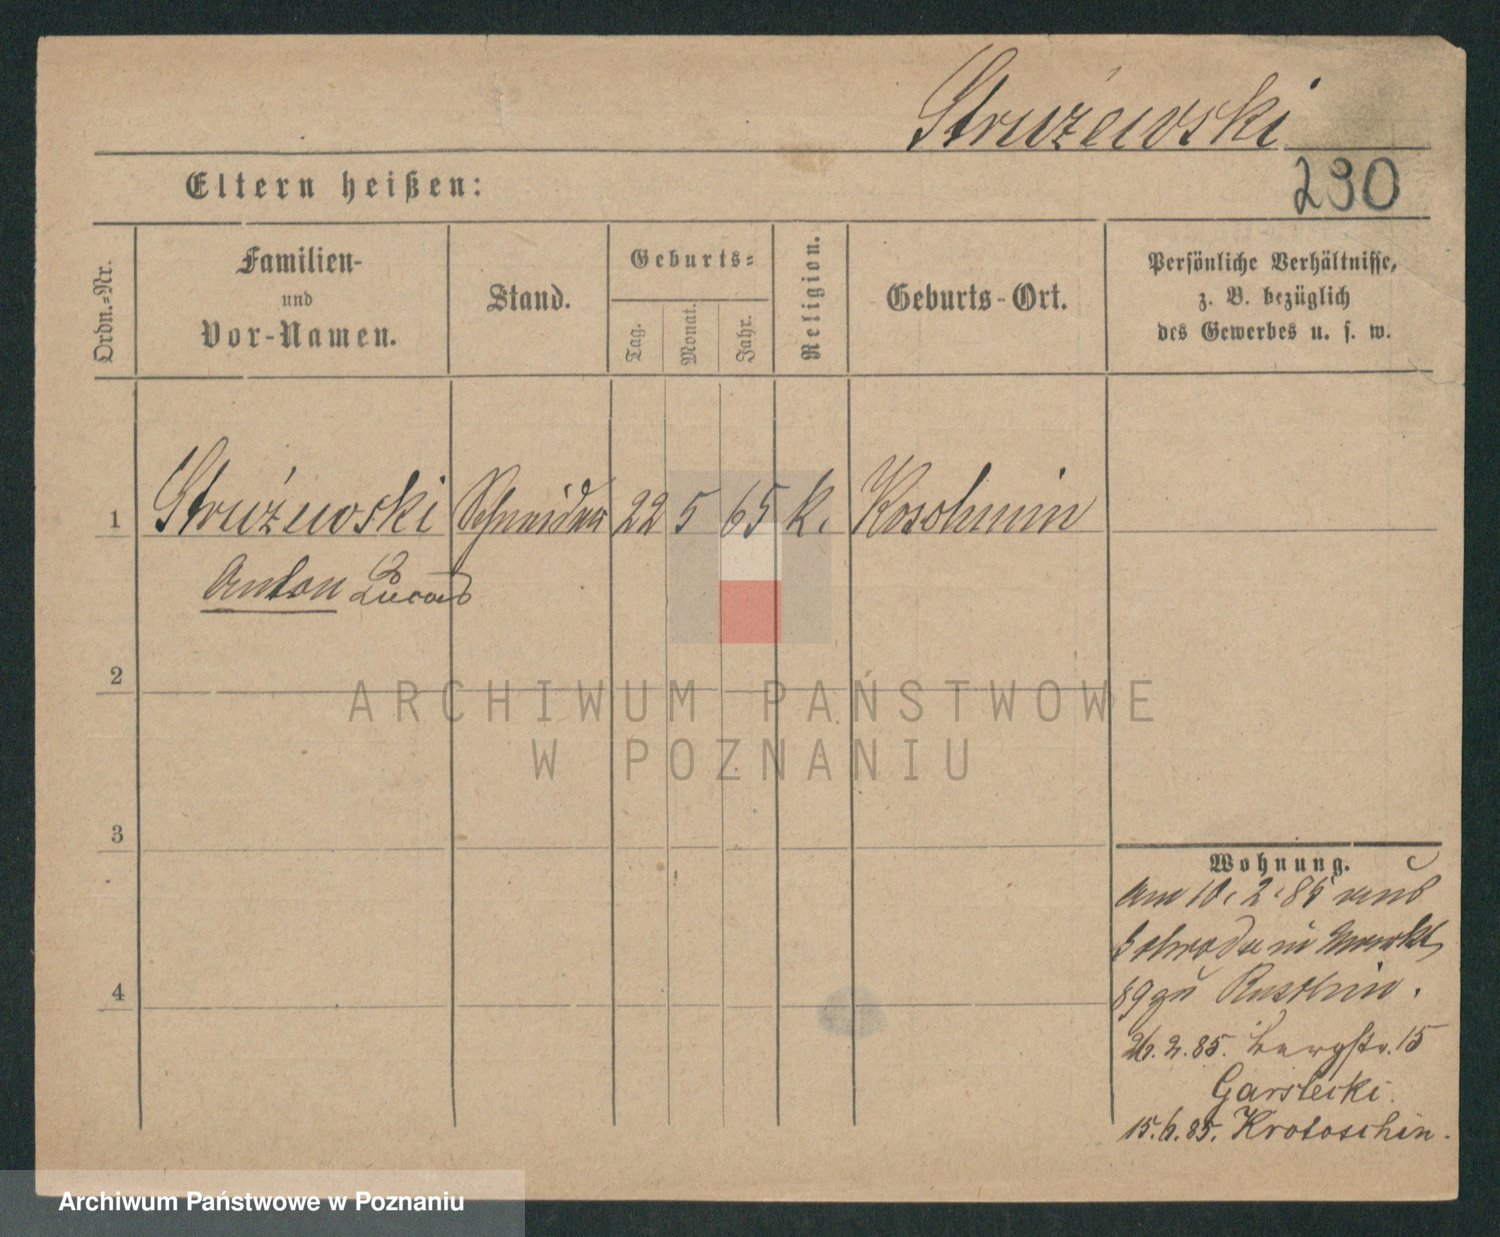 Strużewski
290
Eltern heißen:
Ordn.=Nr.
Familien-
und
Vor-Namen.
Stand.
Geburts=
Tag.
Monat.
Jahr.
Religion.
Geburts-Ort.
Persönliche Verhältnisse,
z. B. bezüglich
des Gewerbes u. s. w.
1 Strużewski Schneider 22 5 65 k. Koschmin
Anton Lucas
2
ARCHIWUM PAŃSTWOWE
W POZNANIU
3
4
Wohnung.
Am 10. 2. 85 aus
Schroda in Markt
89 zu
26. 2. 85. Bergstr. 15
Garstecki.
15. 6. 85. Krotoschin.
Archiwum Państwowe w Poznaniu